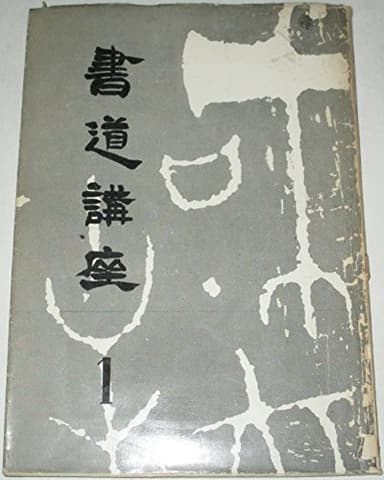 書道講座
1